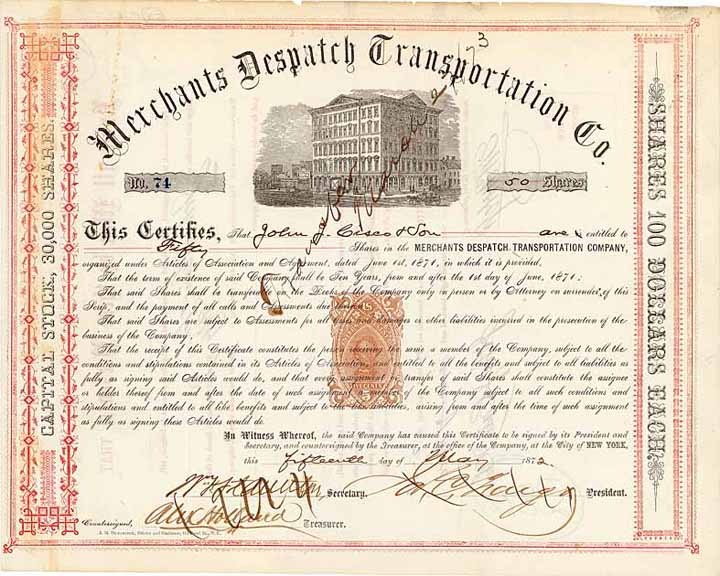 Merchants Despatch Transportation Co.
No. 74
50 Shares
This Certifies, That John J. Cisco & Son are entitled to
Fifty Shares in the MERCHANTS DESPATCH TRANSPORTATION COMPANY,
organized under Articles of Association and Agreement, dated June 1st, 1871, in which it is provided.
That the term of existence of said Company shall be Ten Years, from and after the 1st day of June, 1871;
That said Shares shall be transferable on the Books of the Company only in person or by Attorney on surrender of this
Scrip, and the payment of all calls and Assessments due thereon.
That said Shares are subject to Assessments for all losses and damages or other liabilities incurred in the prosecution of the
business of the Company,
That the receipt of this Certificate constitutes the person receiving the same a member of the Company, subject to all the
conditions and stipulations contained in its Articles of Association, and entitled to all the benefits and subject to all liabilities as
fully as signing said Articles would do, and that every assignment or transfer of said Shares shall constitute the assignee
or holder thereof from and after the date of such assignment a member of the Company subject to all such conditions and
stipulations and entitled to all like benefits and subject to like liabilities, arising from and after the time of such assignment
as fully as signing these Articles would do.
In Witness Whereof, the said Company has caused this Certificate to be signed by its President and
Secretary, and countersigned by the Treasurer, at the office of the Company, at the City of NEW YORK,
this fifteenth day of May 1872.
Secretary.
President.
Countersigned,
Alex Holland
Treasurer.
CAPITAL STOCK, 30,000 SHARES.
SHARES 100 DOLLARS EACH.